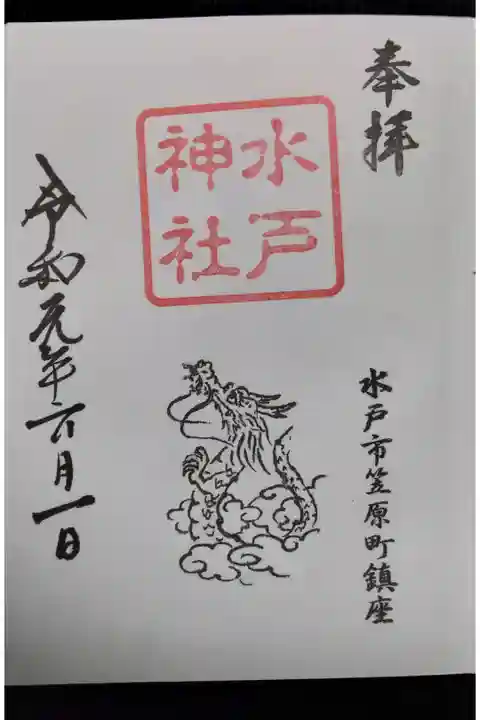 奉拝
水戸市笠原町鎮座
水戸
神社
令和元年六月一日